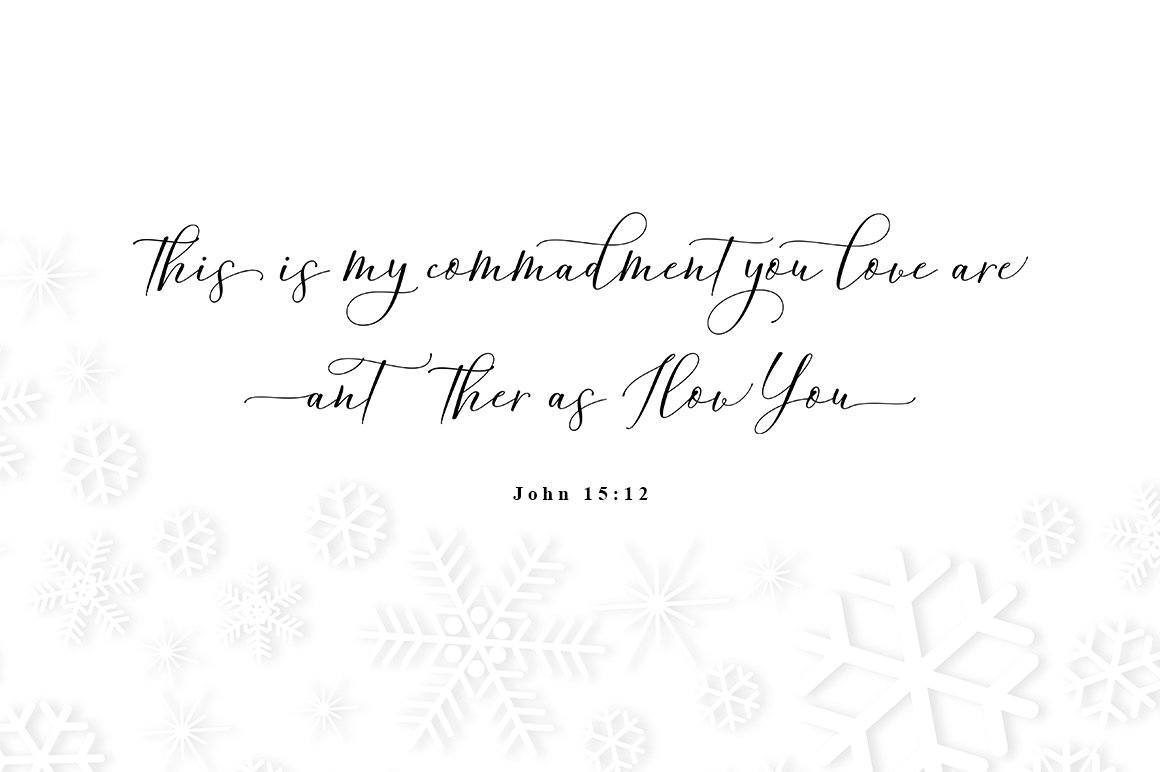 This is my commadment you love are
ant Ther as I lov You
John 15:12